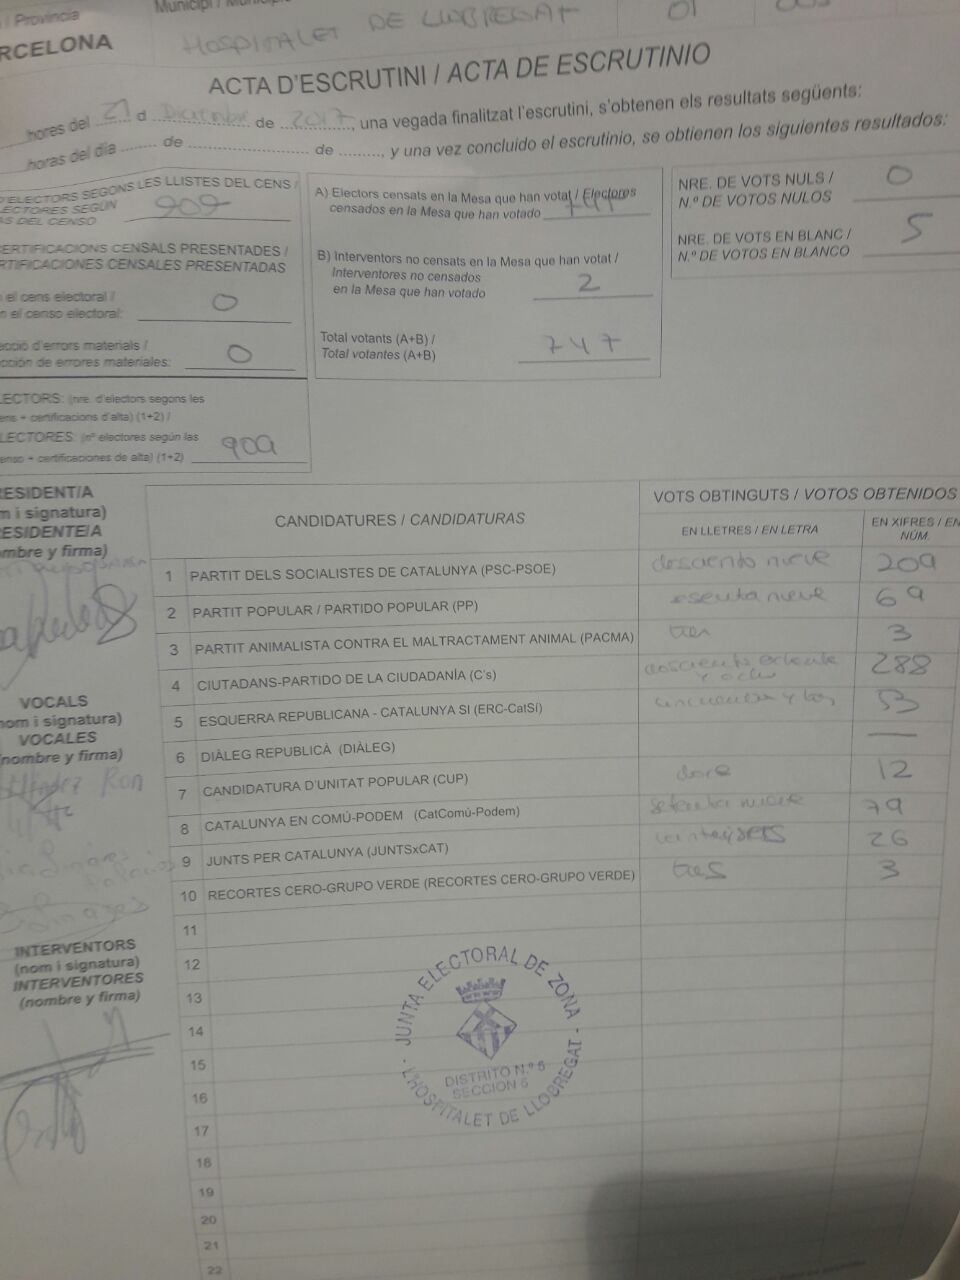 / Provincia
Municipi /
RCELONA
HOSPITALET DE LLOBREGAT
01
ACTA D'ESCRUTINI / ACTA DE ESCRUTINIO
hores del 21 d Diciembre de 2017, una vegada finalitzat l'escrutini, s'obtenen els resultats següents:
horas del día ........ de ........................ de ........, y una vez concluido el escrutinio, se obtienen los siguientes resultados:
ELECTORS SEGONS LES LLISTES DEL CENS /
ECTORES SEGÚN
AS DEL CENSO
909
ERTIFICACIONS CENSALS PRESENTADES /
RTIFICACIONES CENSALES PRESENTADAS
el cens electoral /
n el censo electoral: 0
cció d'errors materials /
cción de errores materiales: 0
LECTORS: (nre. d'electors segons les
ens + certificacions d'alta) (1+2) /
LECTORES: (nº electores según las
enso + certificaciones de alta) (1+2) 909
A) Electors censats en la Mesa que han votat / Electores
censados en la Mesa que han votado
B) Interventors no censats en la Mesa que han votat /
Interventores no censados
en la Mesa que han votado 2
Total votants (A+B) /
Total votantes (A+B) 747
NRE. DE VOTS NULS /
N.º DE VOTOS NULOS 0
NRE. DE VOTS EN BLANC /
N.º DE VOTOS EN BLANCO 5
RESIDENT/A
m i signatura)
RESIDENTE/A
ombre y firma)
VOCALS
nom i signatura)
VOCALES
(nombre y firma)
INTERVENTORS
(nom i signatura)
INTERVENTORES
(nombre y firma)
CANDIDATURES / CANDIDATURAS
VOTS OBTINGUTS / VOTOS OBTENIDOS
EN LLETRES / EN LETRA
EN XIFRES / EN
NÚM.
1 PARTIT DELS SOCIALISTES DE CATALUNYA (PSC-PSOE) doscientos nueve 209
2 PARTIT POPULAR / PARTIDO POPULAR (PP) sesenta nueve 69
3 PARTIT ANIMALISTA CONTRA EL MALTRACTAMENT ANIMAL (PACMA) tres 3
4 CIUTADANS-PARTIDO DE LA CIUDADANÍA (C's) doscientos ochenta y ocho 288
5 ESQUERRA REPUBLICANA - CATALUNYA SI (ERC-CatSí) cincuenta y tres 53
6 DIÀLEG REPUBLICÀ (DIÀLEG) —
7 CANDIDATURA D'UNITAT POPULAR (CUP) doce 12
8 CATALUNYA EN COMÚ-PODEM (CatComú-Podem) setenta nueve 79
9 JUNTS PER CATALUNYA (JUNTSxCAT) veintiseis 26
10 RECORTES CERO-GRUPO VERDE (RECORTES CERO-GRUPO VERDE) tres 3
11
12
13
14
15
16
17
18
19
20
21
22
JUNTA ELECTORAL DE ZONA
DISTRITO N.º 5
SECCION 6
L'HOSPITALET DE LLOBREGAT